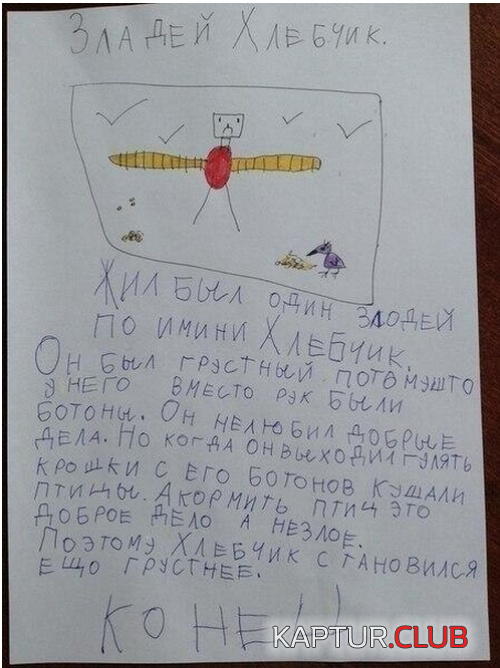 Зладей Хлебчик.
Жил был один злодей
по имини Хлебчик.
Он был грустный. потомушто
у него вместо рук были
ботоны. Он нелюбил добрые
дела. Но когда он выходил гулять
крошки с его ботонов кушали
птицы. А кормить птиц это
доброе дело а незлое.
Поэтому Хлебчик становился
ещо грустнее.
Конец
KAPTUR.CLUB